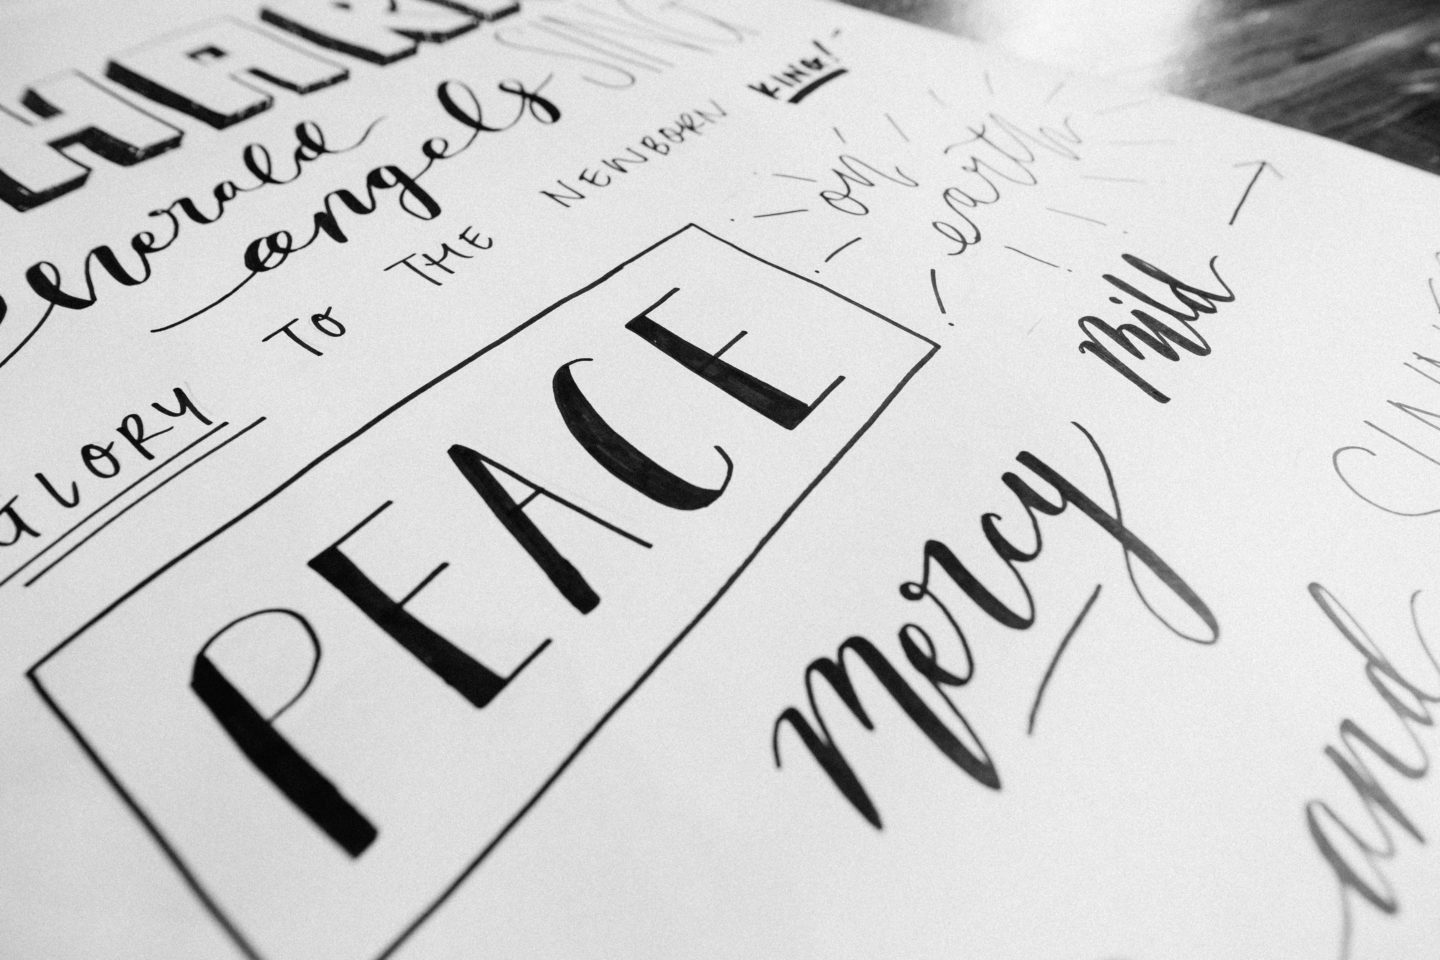 HARK
angels SING
GLORY TO THE NEWBORN KING!
PEACE on
earth
Mercy Mild
and